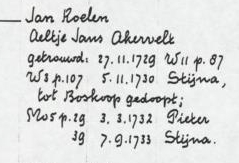 Jan Roelen
Aeltje Jans Akervelt
getrouwd: 27.11.1729 W11 p.87
W8 p.107 5.11.1730 Stijna,
tot Boskoop gedoopt;
Mo5 p.29 3.3.1732 Pieter
39 7.9.1733 Stijna.